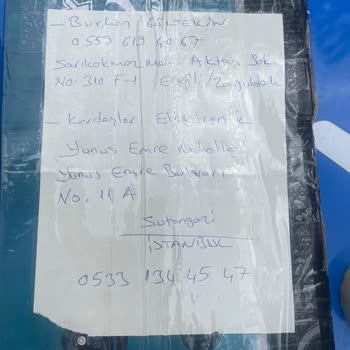 - Burhan GÜLTEKİN
0553 619 40 67
Sarıkokmaz Mah. Aktaş Sok
No. 310 F-1 Ereğli/Zonguldak
- Kardeşler Elektronik
Yunus Emre Mahalle
Yunus Emre Bulvarı
No. 11 A
Sultangazi
İSTANBUL
0533 134 45 47